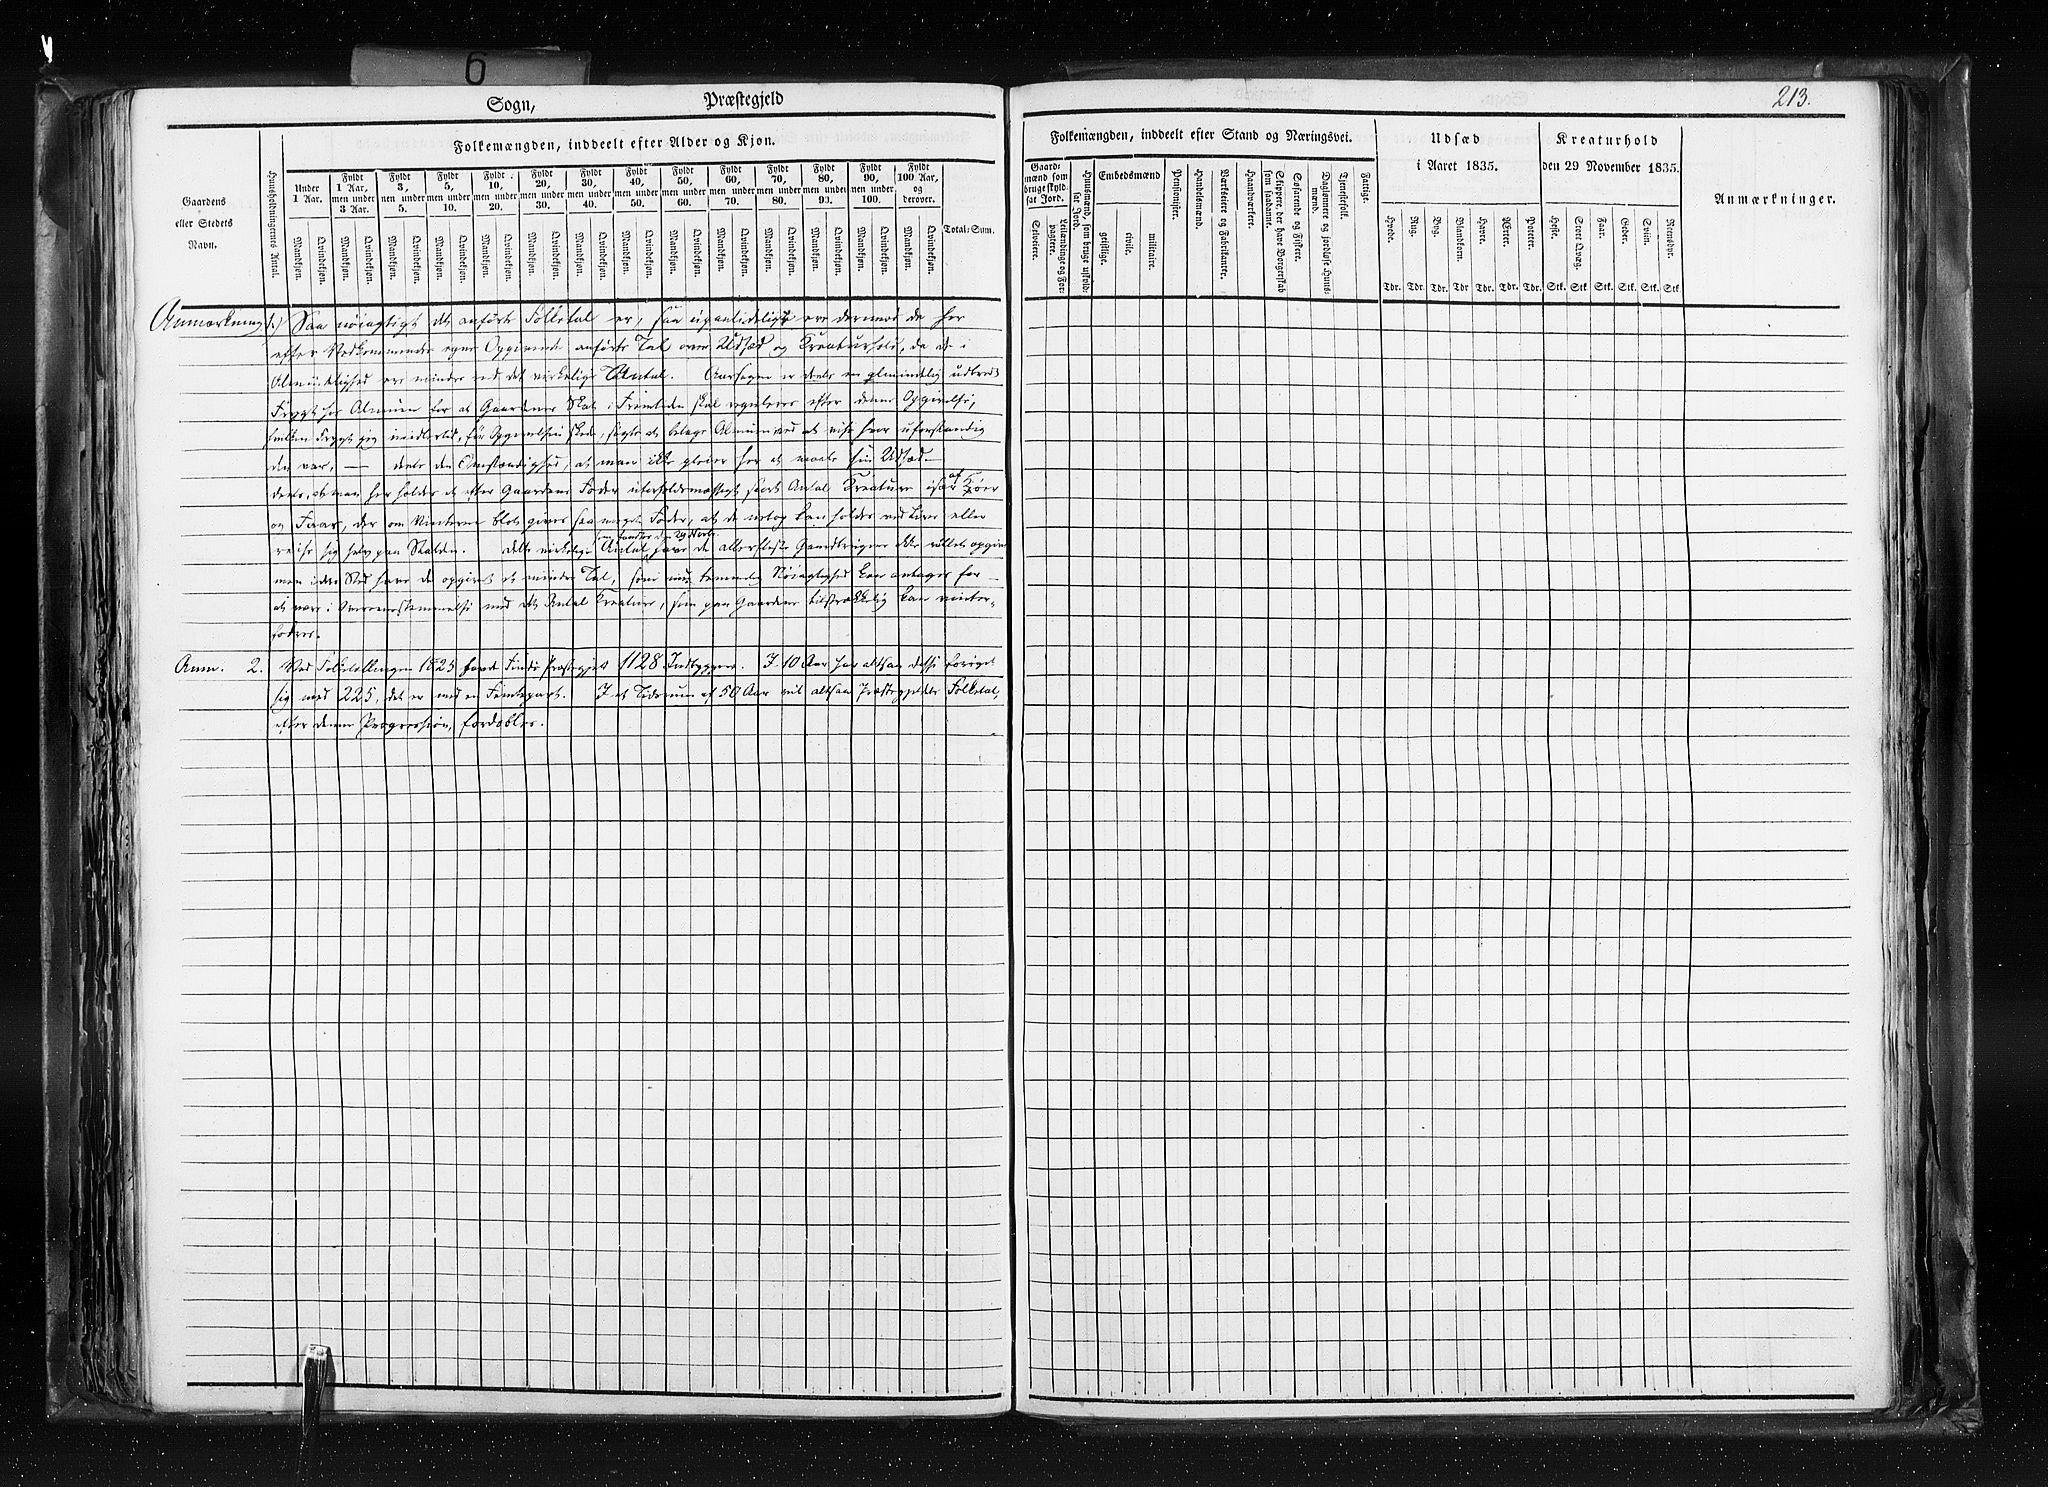 6
Sogn, Præstegjeld
213.
Folkemængden, inddeelt efter Alder og Kjøn.
Folkemængden, inddeelt efter Stand og Næringsvei.
Udsæd
i Aaret 1835.
Kreaturhold
den 29 November 1835.
Anmærkninger.
Gaardens
eller Stedets
Navn.
Huusholdningernes Antal.
Under
1 Aar.
Fyldt
1 Aar,
men under
3 Aar.
Fyldt
3,
men under
5.
Fyldt
5,
men under
10.
Fyldt
10,
men under
20.
Fyldt
20,
men under
30.
Fyldt
30,
men under
40.
Fyldt
40,
men under
50.
Fyldt
50,
men under
60.
Fyldt
60,
men under
70.
Fyldt
70,
men under
80.
Fyldt
80,
men under
90.
Fyldt
90,
men under
100.
Fyldt
100 Aar,
og
derover.
Total-Sum.
Mandkjøn. Qvindekjøn. Mandkjøn. Qvindekjøn. Mandkjøn. Qvindekjøn. Mandkjøn. Qvindekjøn. Mandkjøn. Qvindekjøn. Mandkjøn. Qvindekjøn. Mandkjøn. Qvindekjøn. Mandkjøn. Qvindekjøn. Mandkjøn. Qvindekjøn. Mandkjøn. Qvindekjøn. Mandkjøn. Qvindekjøn. Mandkjøn. Qvindekjøn. Mandkjøn. Qvindekjøn. Mandkjøn. Qvindekjøn.
Gaard-
mænd som
bruge skyld-
sat Jord.
Selveiere.
Leilændinge og For-
pagtere.
Huusmænd, som bruge uskyld-
sat Jord.
Embedsmænd
geistlige.
civile.
militaire.
Pensionister.
Handelsmænd.
Værkseiere og Fabrikanter.
Haandværkere.
Skippere, der have Borgerskab
som saadanne.
Søfarende og Fiskere.
Daglønnere og jordløse Huus-
mænd.
Tjenestefolk.
Fattige.
Hvede. Rug. Byg. Blandkorn. Havre. Erter. Poteter. Heste. Stort Qvæg. Faar. Geder. Sviin. Rensdyr.
Tdr. Tdr. Tdr. Tdr. Tdr. Tdr. Tdr. Stk. Stk. Stk. Stk. Stk. Stk.
Anmærkning 1.) Saa nøiagtigt det anførte Folketal er, saa upaalidelige ere derimod de her
efter Vedkommendes egne Opgivende anførte Tal over Udsæd og Kreaturhold, da de i
Almindelighed ere mindre end det virkelige Antal. Aarsagen er deels en almindelig udbredt
Frygt hos Almuen for at Gaardenes Skat i Fremtiden skal reguleres efter denne Opgivelse,
hvilken Frygt jeg imidlertid, før Opgivelsen skede, søgte at betage Almuen ved at vise hvor uforstandig
den var, — deels den Omstændighed, at man ikke pleier her at maale sin Udsæd —
deels, at man her holder et efter Gaardens Foder uforholdsmæssigt stort Antal Kreature især af Køer
og Faar, der om Vinteren blot gives saa meget Foder, at de netop kan holdes ved Livet eller
reise sig selv paa Stalden. Dette virkelige Antal have de allerfleste Gaardbrugere ikke villet opgive
som fandtes den 29 Novbr.
men i det Sted have de opgivet et mindre Tal, som med temmelig Nøiagtighed kan antages for
at være i Overensstemmelse med det Antal Kreature, som paa Gaardene tilstrækkelig kan vinter-
fødes.
Anm. 2. Ved Folketællingen 1825 havde Præstegjeld 1128 Indbyggere. I 10 Aar har altsaa dette forøget
sig med 225, det er med en Femtepart. I et Tidsrum af 50 Aar vil altsaa Præstegjeldets Folketal,
efter denne Progression, fordobles.